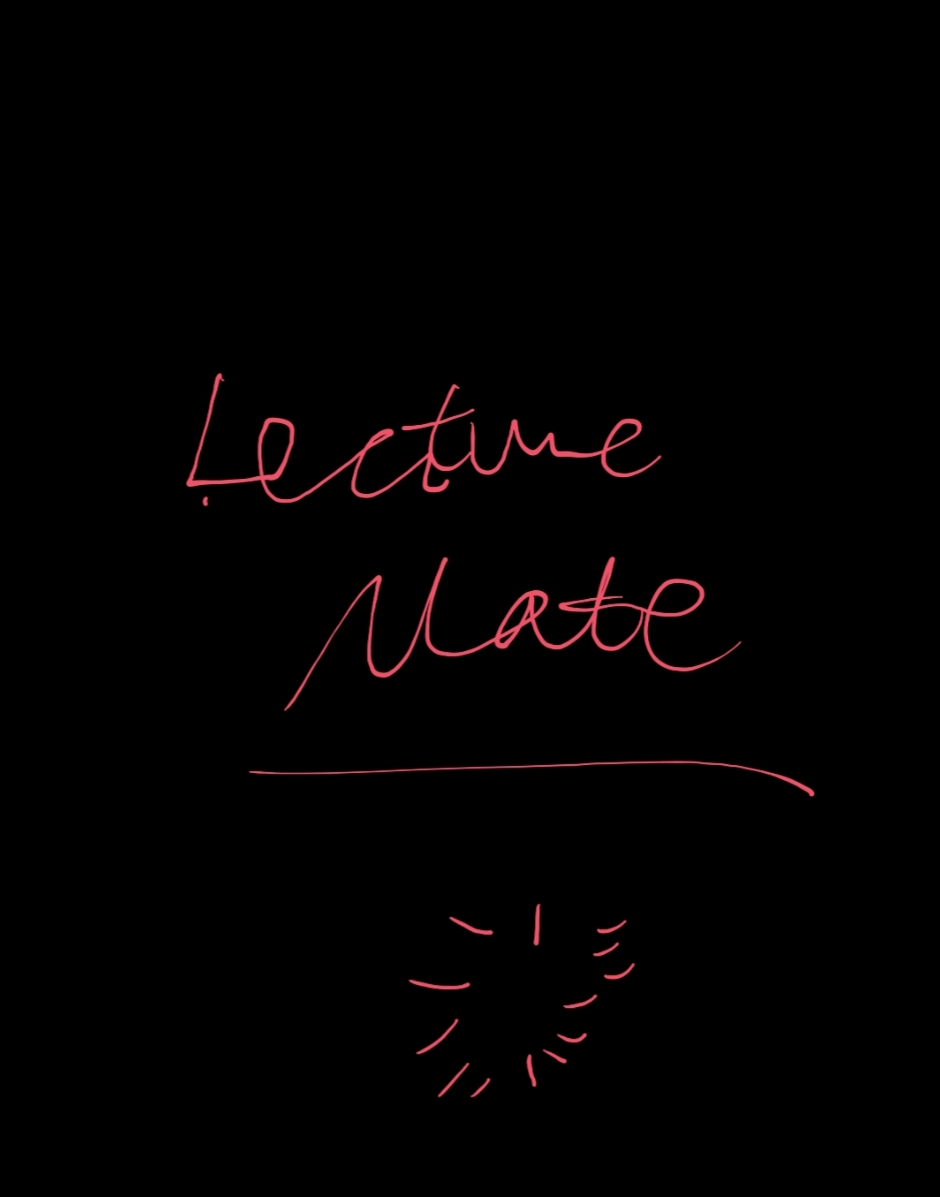 Lecture
Mate